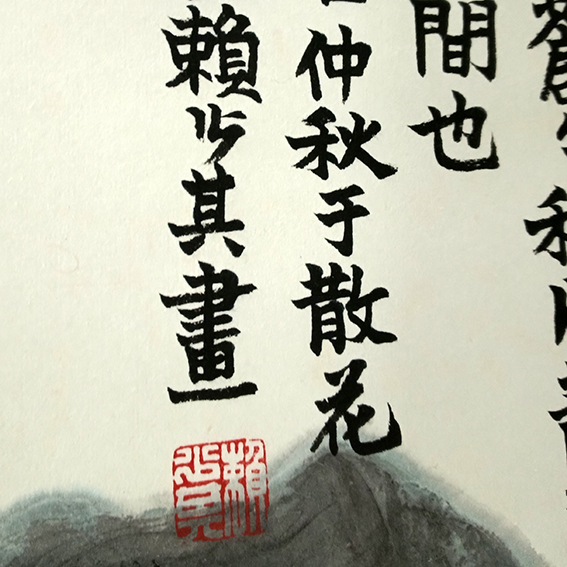 間也
仲秋于散花
賴少其畫
賴少其